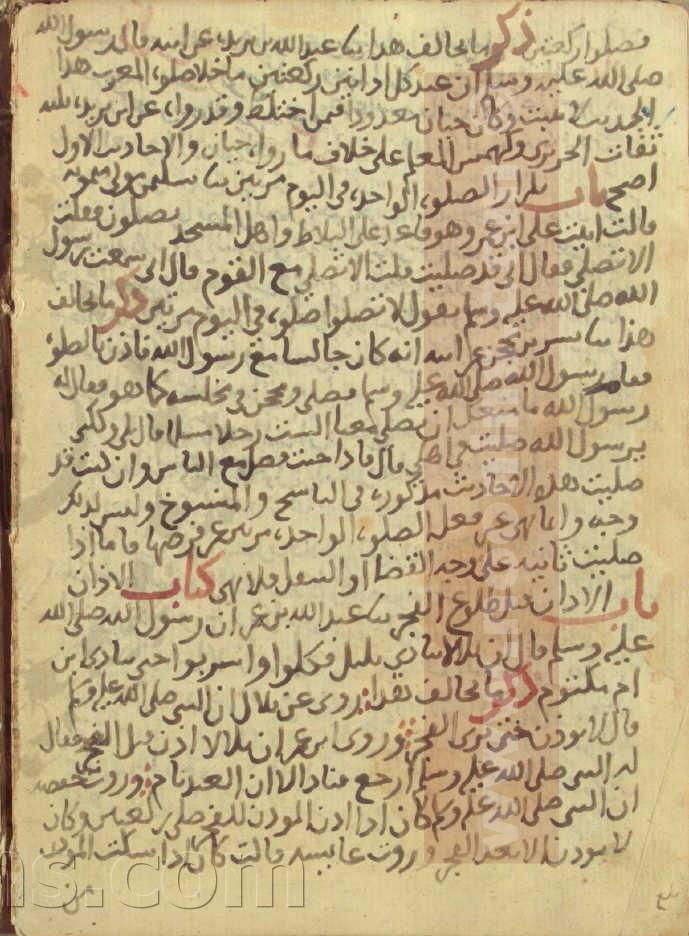 فصلوا ركعتين ذكر ما يخالف هذا بنا عبد الله بن بريد، عن ابيه قال رسول الله
صلى الله عليه وسلم ان عند كل اذانين ركعتين ما خلا صلو، المغرب هذا
الحديث لا يثبت وكان حيان معدودا فمن اختلط وقد روا، عن ابن بريد،
ثقات الجريري وكهمس المعلم على خلاف ما روا، حيان والاحاديث الاول
اصح باب تكرار الصلو، الواحد، في اليوم مرتين بنا سليمن مولى ميمونه
قالت اتيت على ابن عمر وهو قاعد على البلاط واهل المسجد يصلون فقلت
الا تصلي فقال اني قد صليت قلت الا تصلي مع القوم قال اني سمعت رسول
الله صلى الله عليه وسلم يقول لا تصلوا صلو، في اليوم مرتين ذكر ما يخالف
هذا بنا بسر بن محجن عن ابيه انه كان جالسا مع رسول الله فاذن بالصلو،
فقام رسول الله صلى الله عليه وسلم فصلى ومحجن في مجلسه كما هو فقال له
رسول الله ما منعك ان تصلي معنا الست رجلا مسلما قال بلى ولكني
يرسول الله صليت في اهلي قال فاذا جئت فصل مع الناس وان كنت قد
صليت هذه الاحاديث مذكور، في الناسخ والمنسوخ وليس لذلك
وجه وانما نهى عن فعل الصلو، الواحد، مرتين عن فرضها فاما اذا
صليت ثانيه على وجه القضا او النفل فلا نهى كتاب الاذان
باب الاذان قبل طلوع الفجر بنا عبد الله بن عمر ان رسول الله صلى الله
عليه وسلم قال ان بلالا ينادي بليل فكلوا واشربوا حتى ينادي ابن
ام مكتوم ذكر ما يخالف هذا روى عن بلال ان النبي صلى الله عليه وسلم
قال لا تؤذن حتى ترى الفجر وروى ابن عمر ان بلالا اذن قبل الفجر فقال
له النبي صلى الله عليه وسلم ارجع فناد الا ان العبد نام وروت حفصه
ان النبي صلى الله عليه وسلم كان اذا اذن المؤذن للفجر صلى ركعتين وكان
لا يؤذن الا بعد الفجر وروت عايشه قالت كان اذا سكت المؤذن
من
بلغ